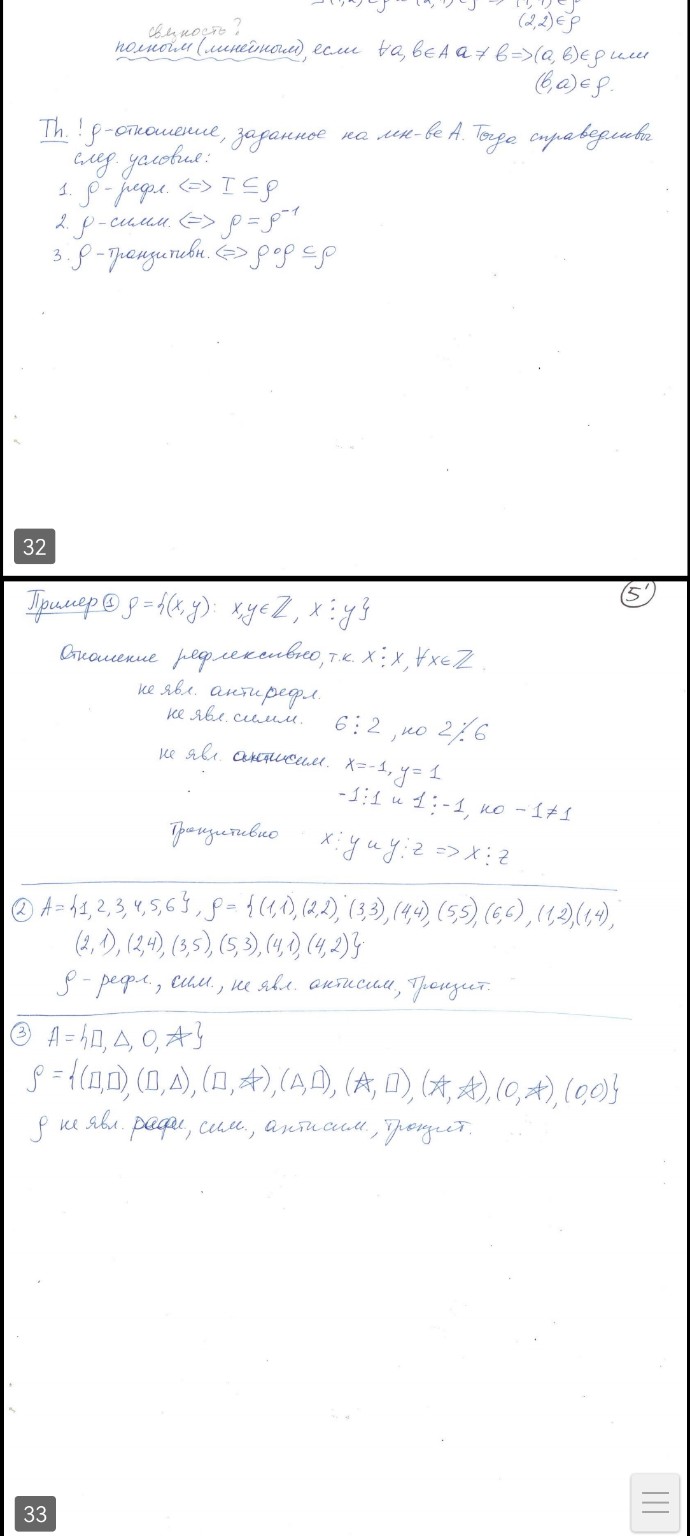 (2,2)∈ρ
связность?
полным (линейным), если ∀a,b∈A a≠b=>(a,b)∈ρ или
(b,a)∈ρ.
Th. ! ρ-отношение, заданное на мн-ве A. Тогда справедливы
след. условия:
1. ρ-рефл. <=> I⊆ρ
2. ρ-симм. <=> ρ=ρ⁻¹
3. ρ-транзитивн. <=> ρ∘ρ⊆ρ
32
5'
Пример ① ρ={(x,y): x,y∈ℤ, x⋮y}
Отношение рефлексивно, т.к. x⋮x, ∀x∈ℤ.
не явл. антирефл.
не явл. симм. 6⋮2, но 2⋮̸6
не явл. антисим. x=-1, y=1
-1⋮1 и 1⋮-1, но -1≠1
Транзитивно x⋮y и y⋮z => x⋮z
② A={1,2,3,4,5,6}, ρ={(1,1),(2,2),(3,3),(4,4),(5,5),(6,6),(1,2),(1,4),
(2,1),(2,4),(3,5),(5,3),(4,1),(4,2)}
ρ-рефл., сим., не явл. антисим., транзит.
③ A={□, △, ○, ☆}
ρ={(□,□),(□,△),(□,☆),(△,□),(☆,□),(☆,☆),(○,☆),(○,○)}
ρ не явл. рефл., сим., антисим., транзит.
33